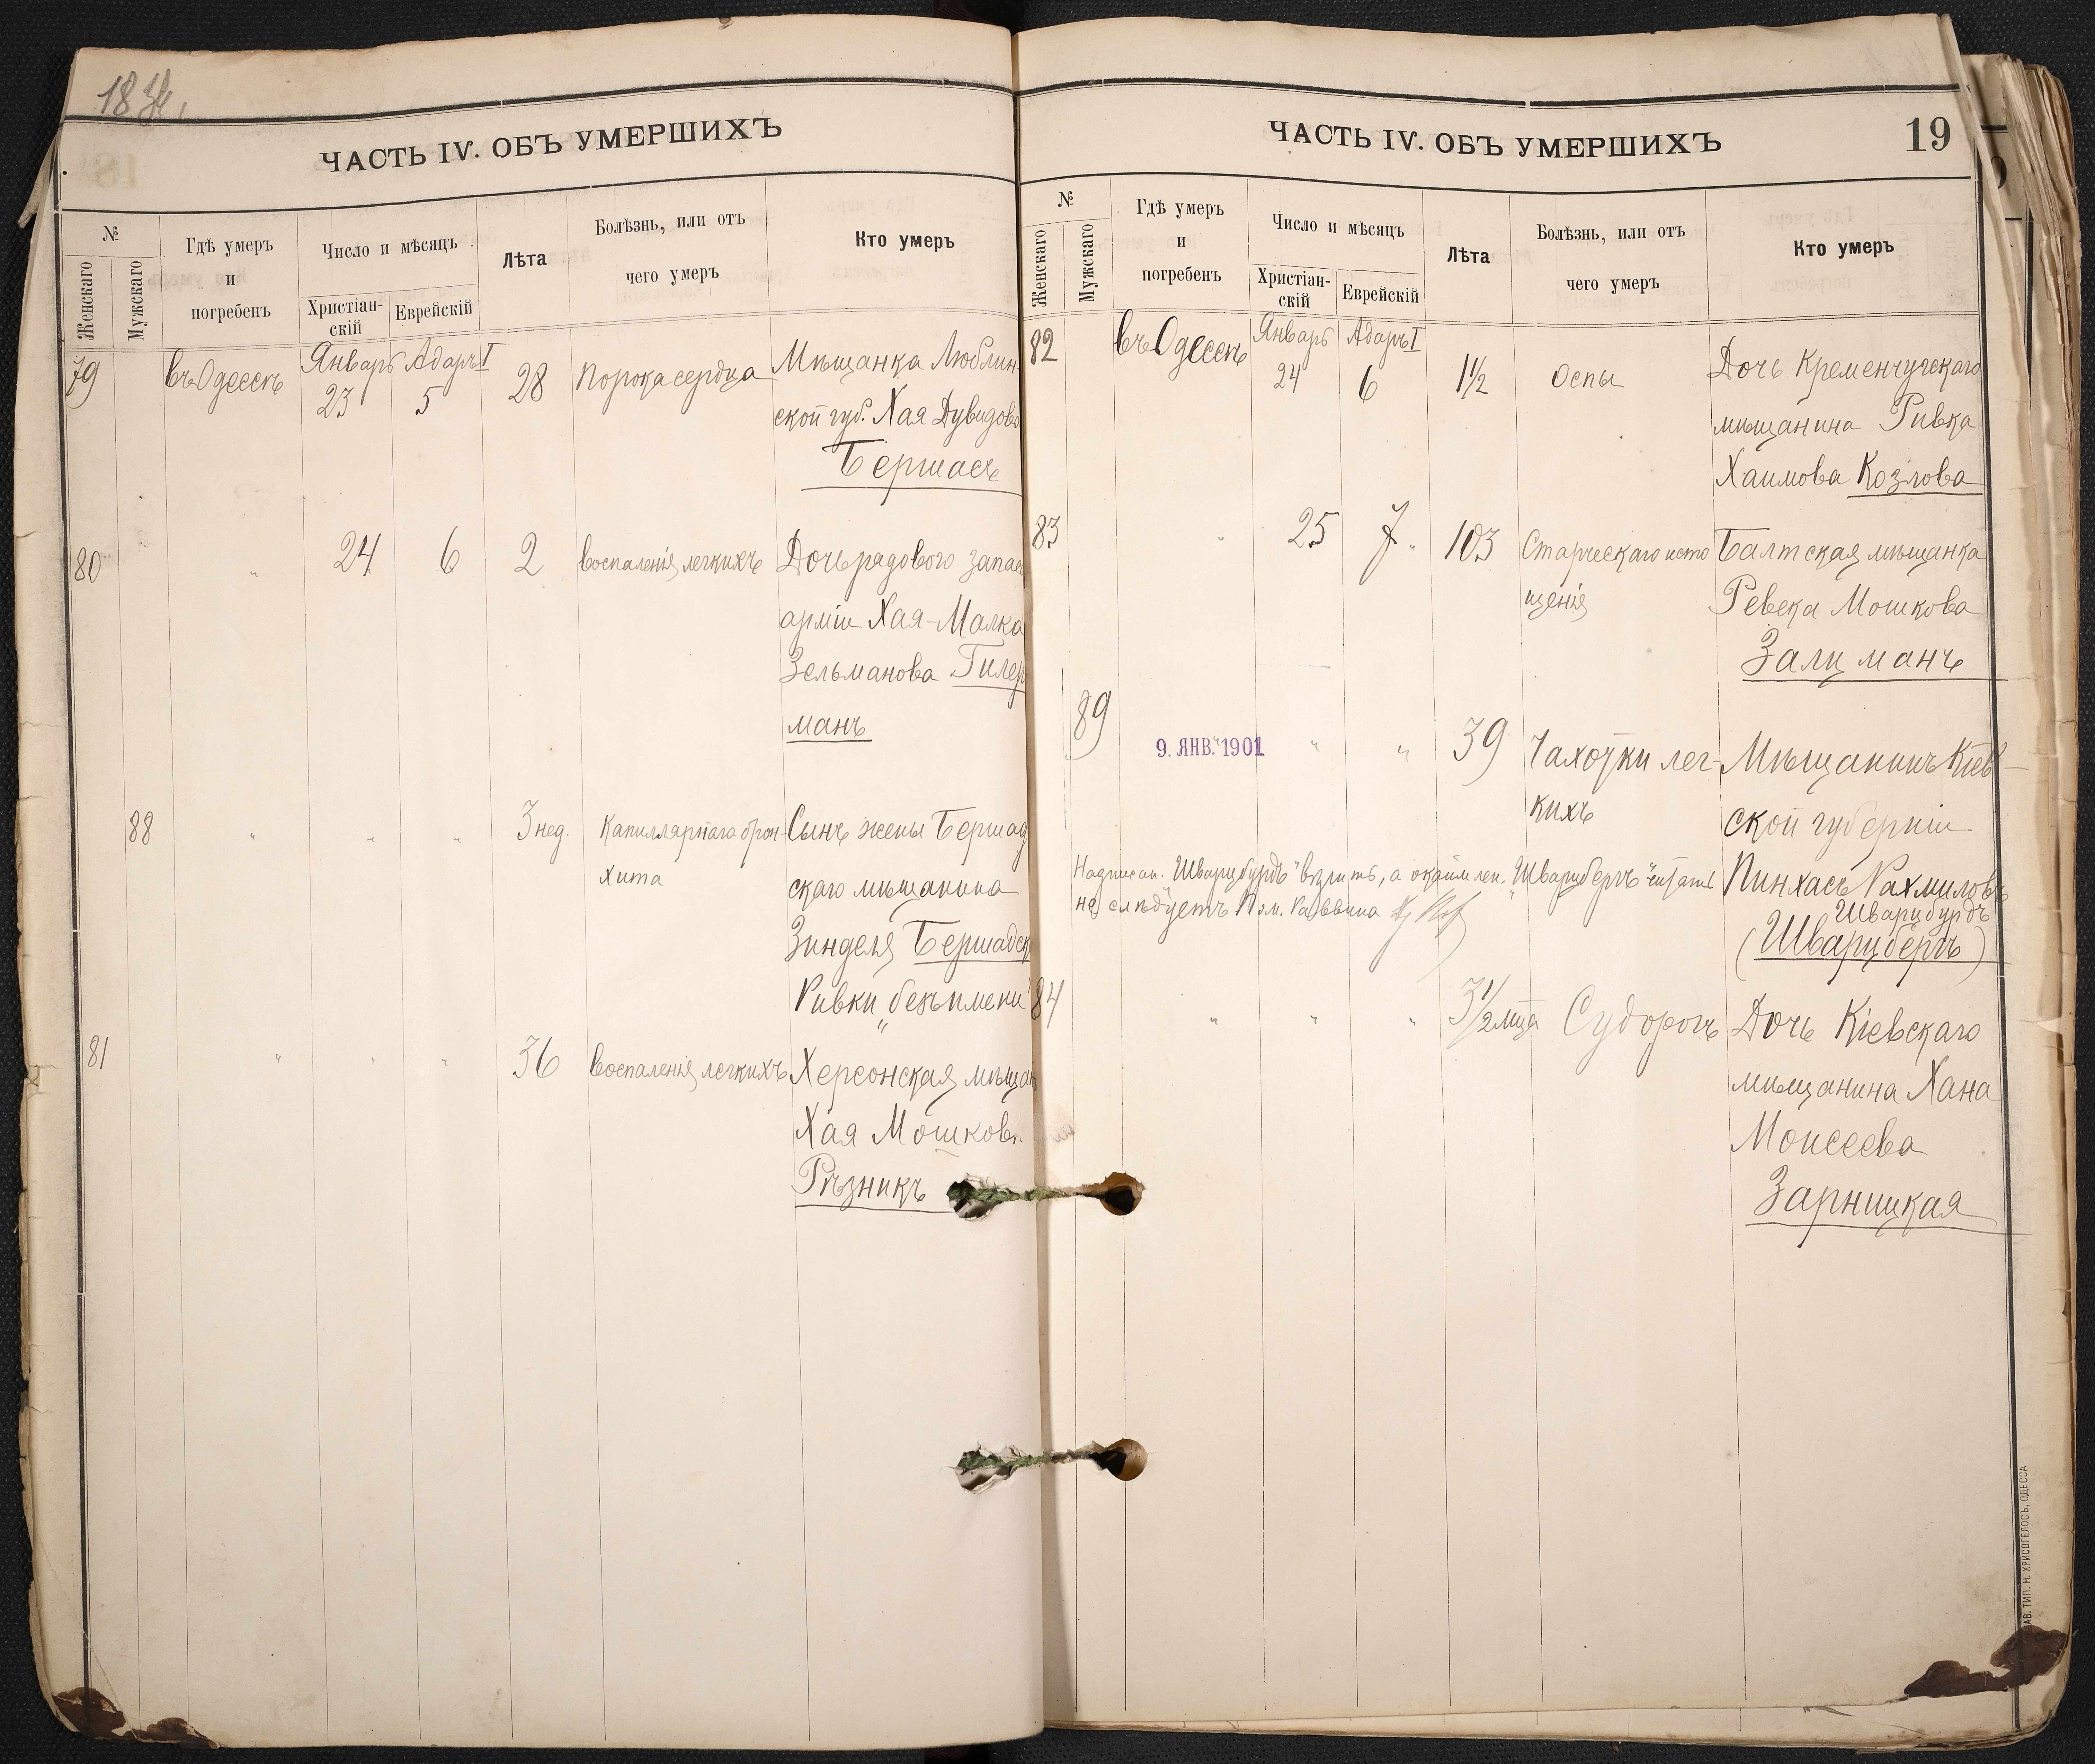 ЧАСТЬ IV. ОБЪ УМЕРШИХЪ
№
Женскаго
Мужскаго
Гдѣ умеръ
и
погребенъ
Число и мѣсяцъ
Христіан-
скій
Еврейскій
Лѣта
Болѣзнь, или отъ
чего умеръ
Кто умеръ
79
въ Одессѣ
Январь
23
Адаръ I
5
28
Порока сердца
Мѣщанка Люблин-
ской губ. Хая Дувидова
Бершасъ
80
"
24
6
2
Воспаленія легкихъ
Дочь рядового запас
арміи Хая-Малка
Зельманова Гилер
манъ
88
"
"
"
3 нед.
Капиллярнаго брон-
хита
Сынъ жены Бершад
скаго мѣщанина
Зинделя Бершадск
Ривки "безъ имени"
81
"
"
"
36
Воспаленія легкихъ
Херсонская мѣщан
Хая Мошков.
Рѣзникъ
ЧАСТЬ IV. ОБЪ УМЕРШИХЪ
19
№
Женскаго
Мужскаго
Гдѣ умеръ
и
погребенъ
Число и мѣсяцъ
Христіан-
скій
Еврейскій
Лѣта
Болѣзнь, или отъ
чего умеръ
Кто умеръ
82
въ Одессѣ
Январь
24
Адаръ I
6
1½
Оспы
Дочь Кременчугскаго
мѣщанина Ривка
Хаимова Козлова
83
"
25
7
103
Старческаго исто
щенія
Балтская мѣщанка
Ревека Мошкова
Залцманъ
89
9. ЯНВ. 1901
"
"
"
39
Чахотки лег-
кихъ
Мѣщанинъ Кіев-
ской губерніи
Пинхасъ Рахмиловъ
Шварцбурдъ
(Шварцбергъ)
Надписан. "Шварцбурдъ" вѣрить, а окаймлен. "Шварцбергъ" читать
не слѣдуетъ Пом. Раввина
84
"
"
"
3½ мца
Судорогъ
Дочь Кіевскаго
мѣщанина Хана
Моисеева
Зарницкая
АВ. ТИП. Н. ХРИСОГЕЛОСЪ, ОДЕССА